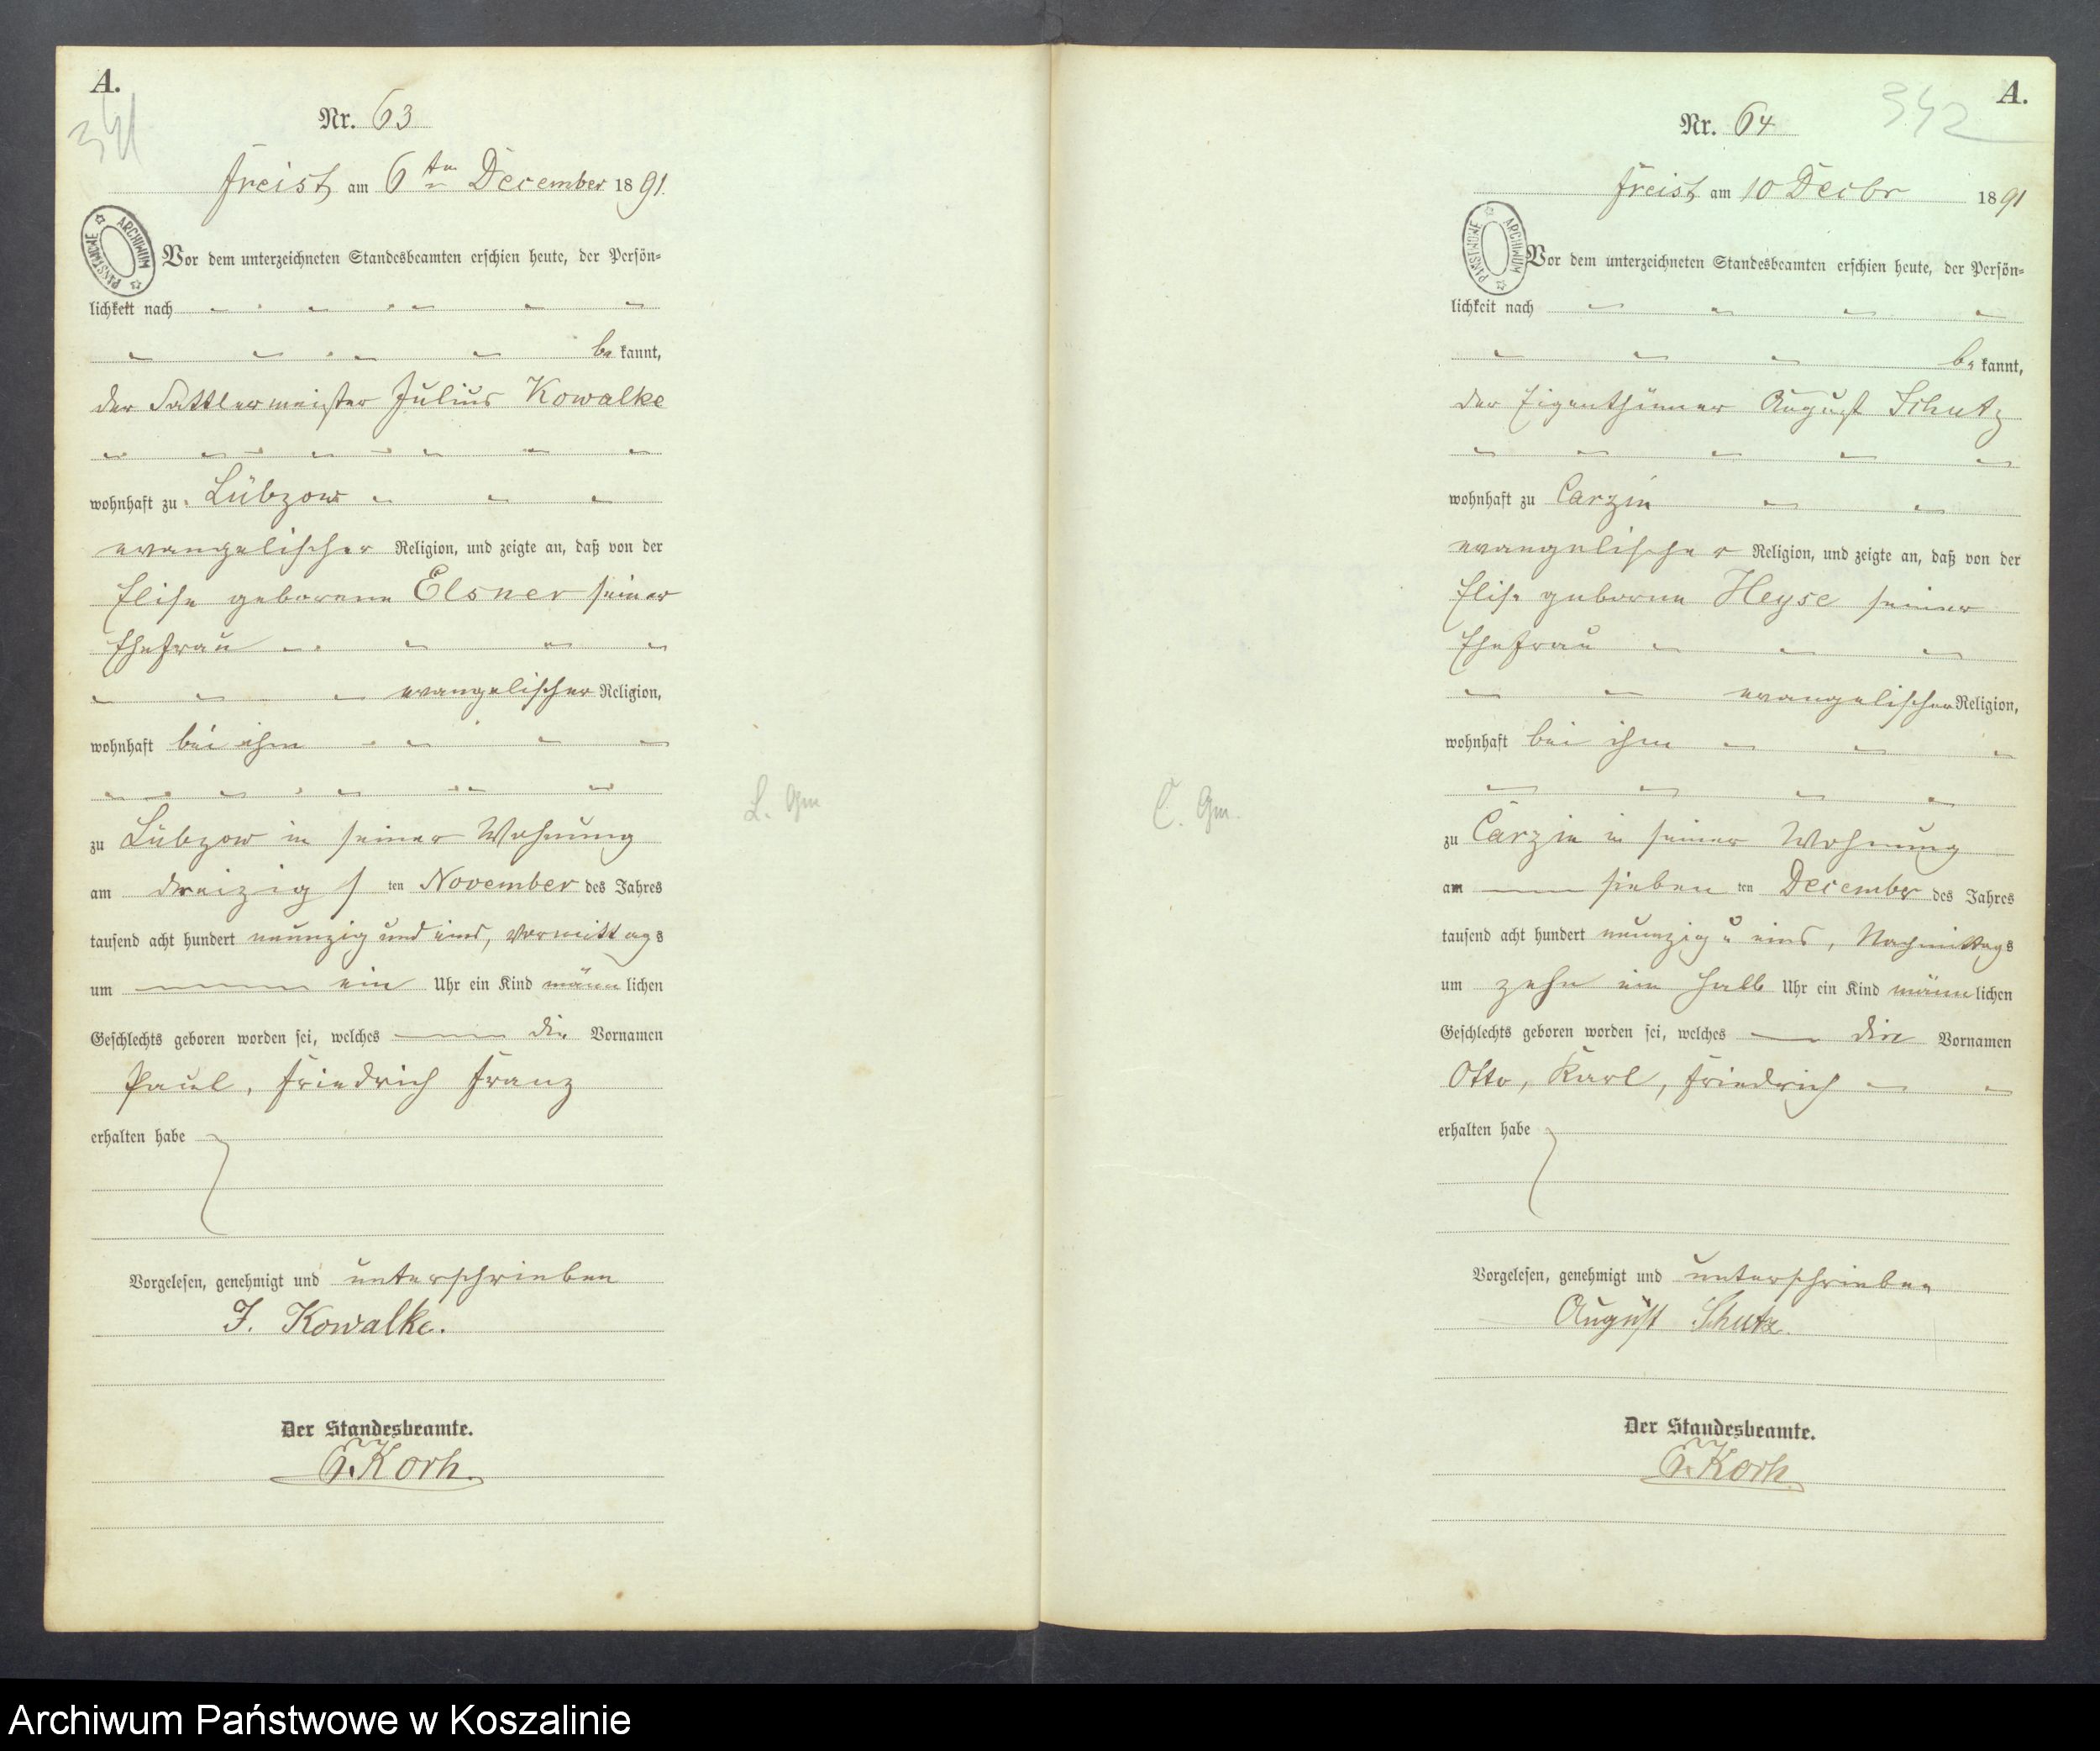 A.
341
Nr. 63
Freist, am 6ten December 1891.
ARCHIWUM PAŃSTWOWE
Vor dem unterzeichneten Standesbeamten erschien heute, der Persön-
lichkeit nach
be kannt,
der Sattlermeister Julius Kowalke
wohnhaft zu Lübzow
evangelischer Religion, und zeigte an, daß von der
Elise geborene Elsner seiner
Ehefrau
evangelischer Religion,
wohnhaft bei ihm
zu Lübzow in seiner Wohnung
am dreizigs ten November des Jahres
tausend acht hundert neunzig und eins, Vormittags
um ein Uhr ein Kind männ lichen
Geschlechts geboren worden sei, welches die Vornamen
Paul, Friedrich Franz
erhalten habe
Vorgelesen, genehmigt und unterschrieben
J. Kowalke.
Der Standesbeamte.
Korh.
L. Gm
A.
342
Nr. 64
Freist, am 10 Decbr 1891
ARCHIWUM PAŃSTWOWE
Vor dem unterzeichneten Standesbeamten erschien heute, der Persön-
lichkeit nach
be kannt,
der Eigenthümer August Schutz
wohnhaft zu Carzin
evangelischer Religion, und zeigte an, daß von der
Elise geborne Heyse seiner
Ehefrau
evangelischer Religion,
wohnhaft bei ihm
zu Carzin in seiner Wohnung
am sieben ten December des Jahres
tausend acht hundert neunzig u eins, Nachmittags
um zehn ein halb Uhr ein Kind männ lichen
Geschlechts geboren worden sei, welches die Vornamen
Otto, Karl, Friedrich
erhalten habe
Vorgelesen, genehmigt und unterschrieben
August Schutz.
Der Standesbeamte.
Korh.
C. Gm.
Archiwum Państwowe w Koszalinie